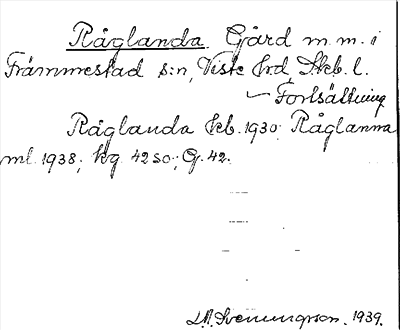 Råglanda Gård m.m. i
Främmestad s:n, Viste hrd, Skb. l.
Fortsättning
Råglanda kb. 1930; Råglanna
ml. 1938; kg. 42 SO.; G. 42.
Sveningsson. 1939.